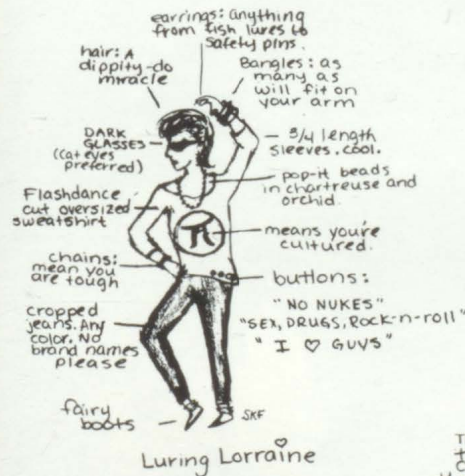 earrings: anything
from fish lures to
safety pins.
hair: A
dippity-do
miracle
Bangles: as
many as
will fit on
your arm
DARK
GLASSES
(cat eyes
preferred)
3/4 length
sleeves. cool.
pop-it beads
in chartreuse and
orchid.
Flashdance
cut oversized
sweatshirt
π
means you're
cultured.
chains:
mean you
are tough
buttons:
"NO NUKES"
"SEX, DRUGS, ROCK-n-roll"
"I ♡ GUYS"
cropped
jeans. Any
color. No
brand names
please
fairy
boots
SKF
Luring Lorraine